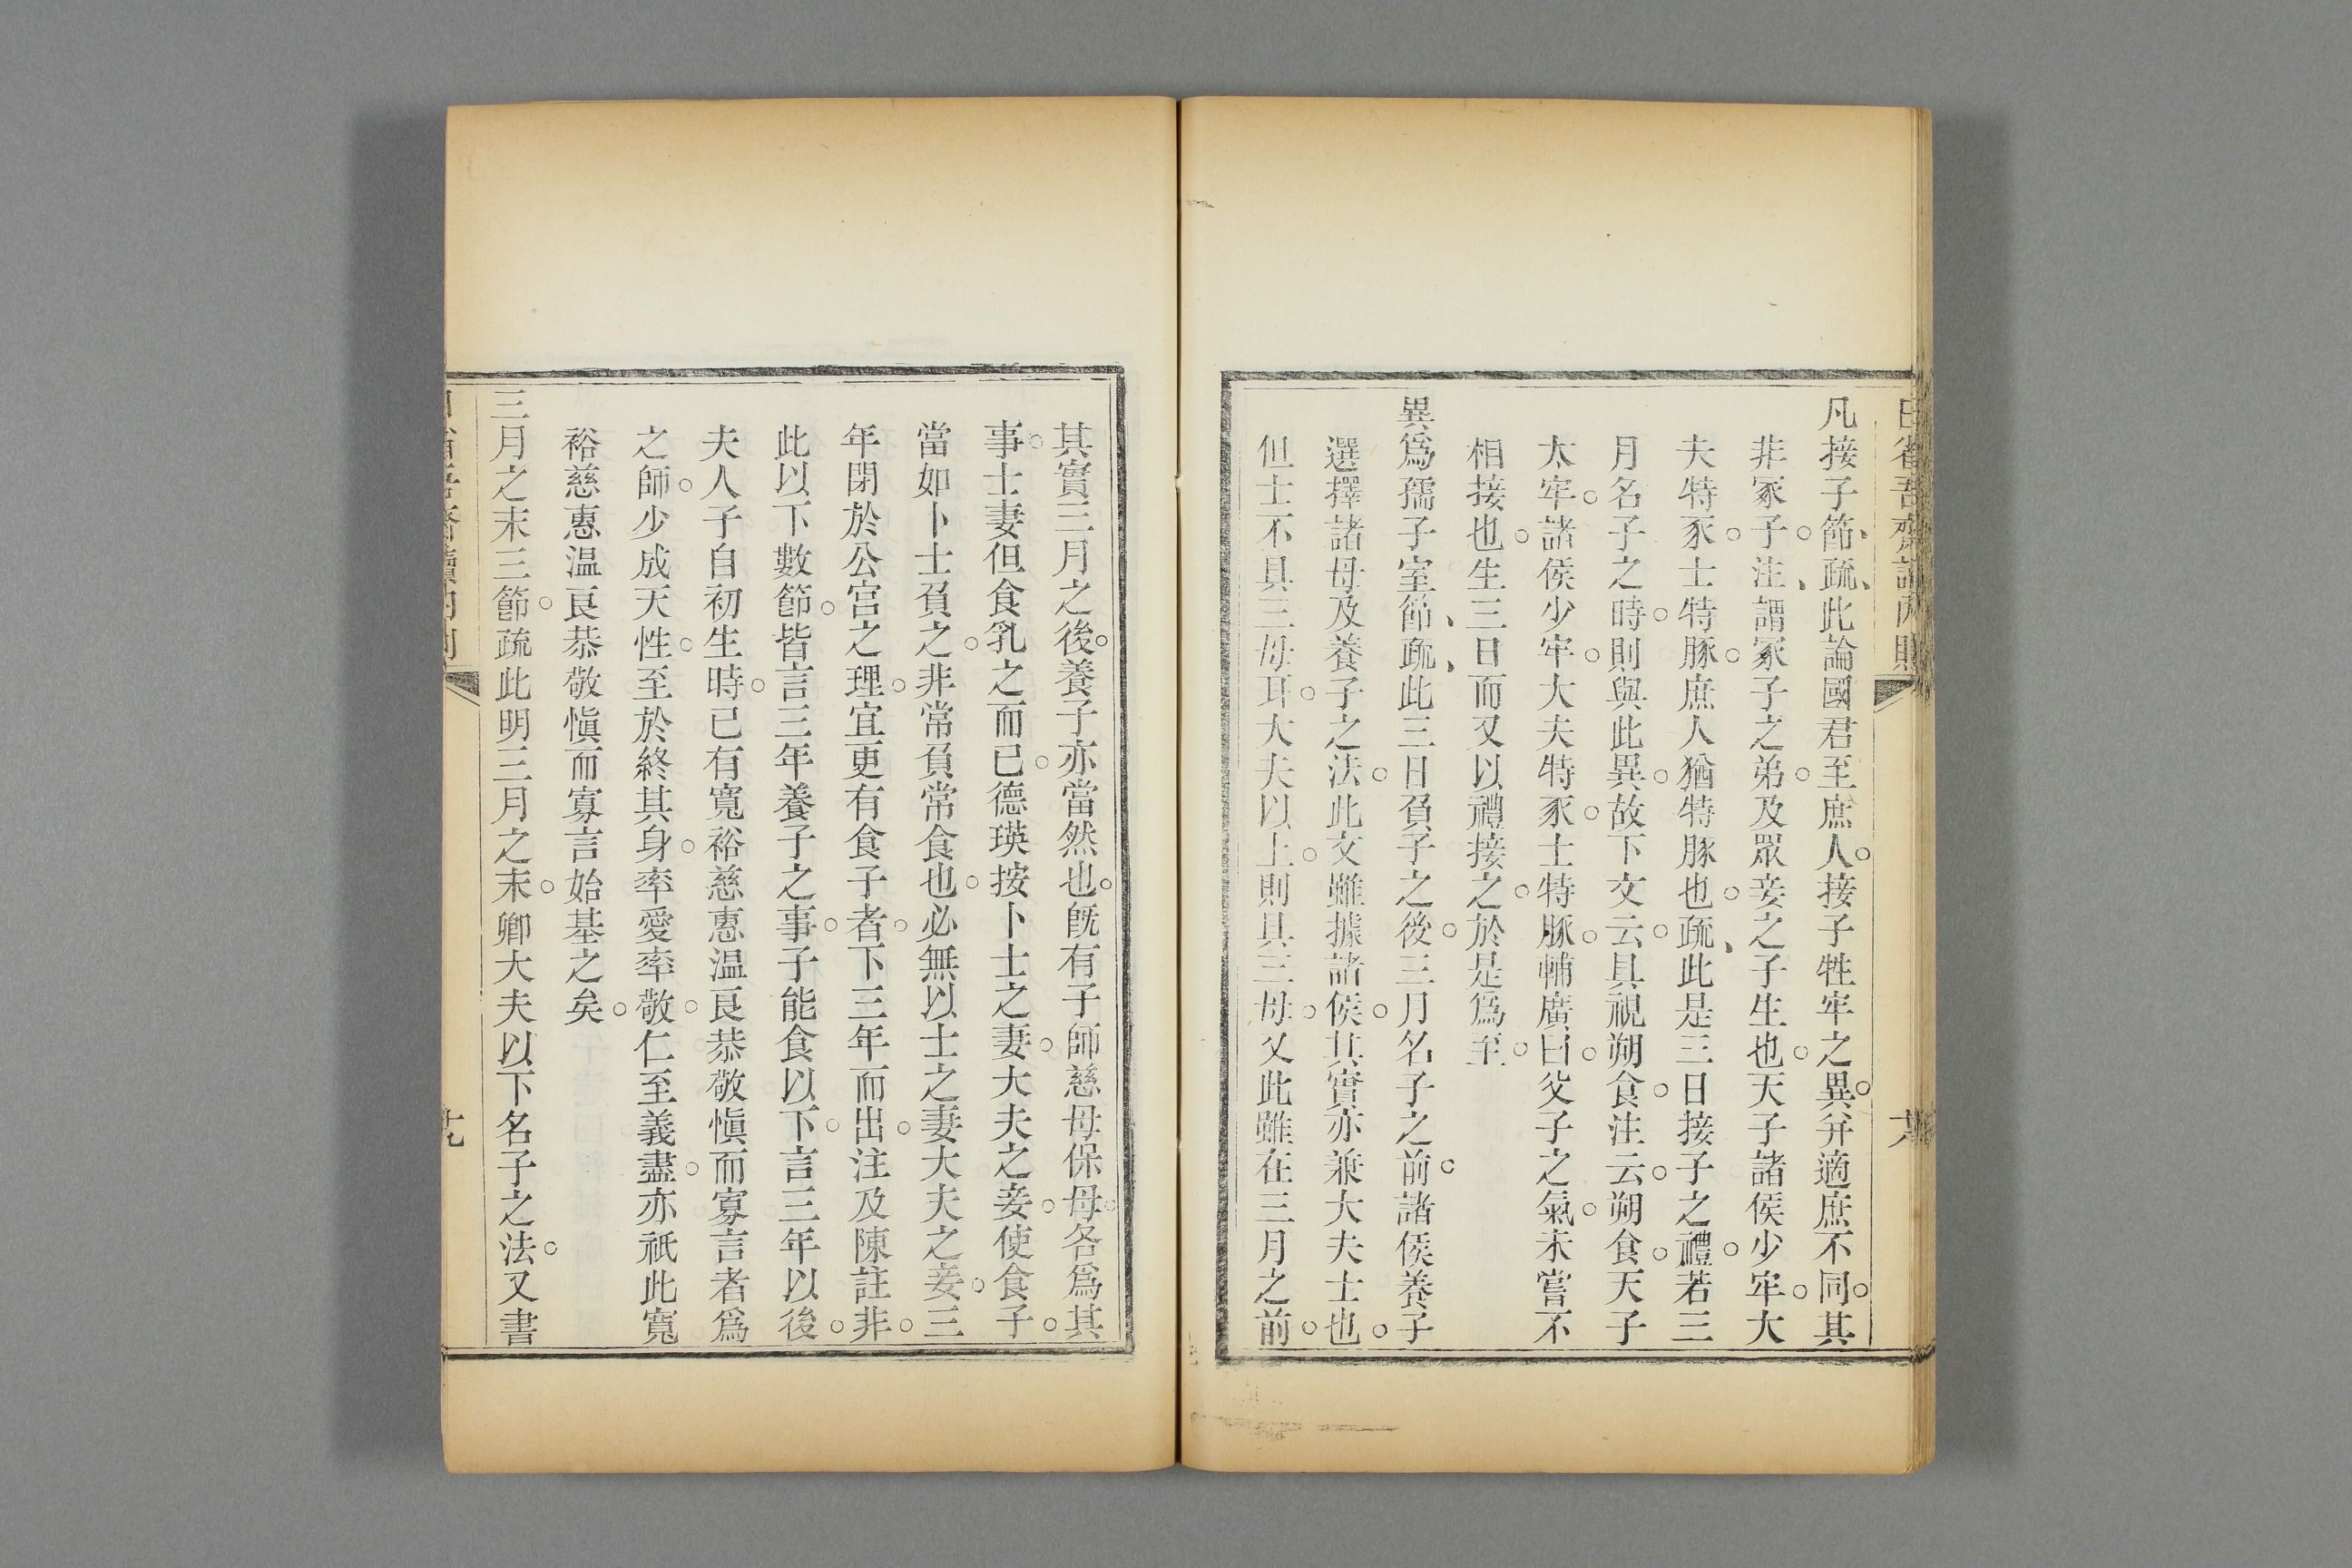 凡接子節、疏、此論國君至庶人。接子牲牢之異。并適庶不同。其
非冢子。注、謂冢子之弟。及眾妾之子生也。天子諸侯少牢。大
夫特豕。士特豚。庶人猶特豚也。疏、此是三日接子之禮。若三
月名子之時。則與此異。故下文云。具視朔食。注云。朔食。天子
太牢。諸侯少牢。大夫特豕。士特豚。輔廣曰。父子之氣。未嘗不
相接也。生三日而又以禮接之。於是爲至。
異爲孺子室節、疏、此三日負子之後。三月名子之前。諸侯養子
選擇諸母及養子之法。此文雖據諸侯。其實亦兼大夫士也。
但士不具三母耳。大夫以上。則具三母。父此雖在三月之前。
其實三月之後。養子亦當然也。既有子師慈母保母。各爲其
事。士妻但食乳之而已。德瑛按卜士之妻。大夫之妾。使食子。
當如卜士負之。非常負常食也。必無以士之妻大夫之妾。三
年閉於公宮之理。宜更有食子者。下三年而出。注及陳註非。
此以下數節。皆言三年養子之事。子能食以下。言三年以後。
夫人子自初生時。已有寬裕慈惠温良恭敬愼而寡言者爲
之師。少成天性。至於終其身。率愛率敬。仁至義盡。亦祇此寬
裕慈惠温良恭敬愼而寡言始基之矣。
三月之末三節。疏此明三月之末。卿大夫以下名子之法。又書